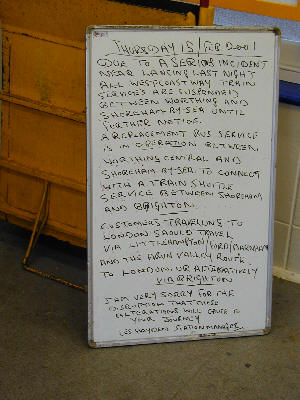 THURSDAY 15/FEB 2001
DUE TO A SERIOUS INCIDENT
NEAR LANCING LAST NIGHT
ALL WESTCOASTWAY TRAIN
SERVICES ARE SUSPENDED
BETWEEN WORTHING AND
SHOREHAM-BY-SEA UNTIL
FURTHER NOTICE.
A REPLACEMENT BUS SERVICE
IS IN OPERATION BETWEEN
WORTHING CENTRAL AND
SHOREHAM-BY-SEA TO CONNECT
WITH A TRAIN SHUTTLE
SERVICE BETWEEN SHOREHAM
AND BRIGHTON.
CUSTOMERS TRAVELLING TO
LONDON SHOULD TRAVEL
VIA LITTLEHAMPTON/FORD/BARNHAM
AND THE ARUN VALLEY ROUTE
TO LONDON OR ALTERNATIVELY
VIA BRIGHTON
I AM VERY SORRY FOR THE
DISRUPTION THAT THESE
ALTERATIONS WILL CAUSE TO
YOUR JOURNEY
LES HAYDAN STATION MANAGER